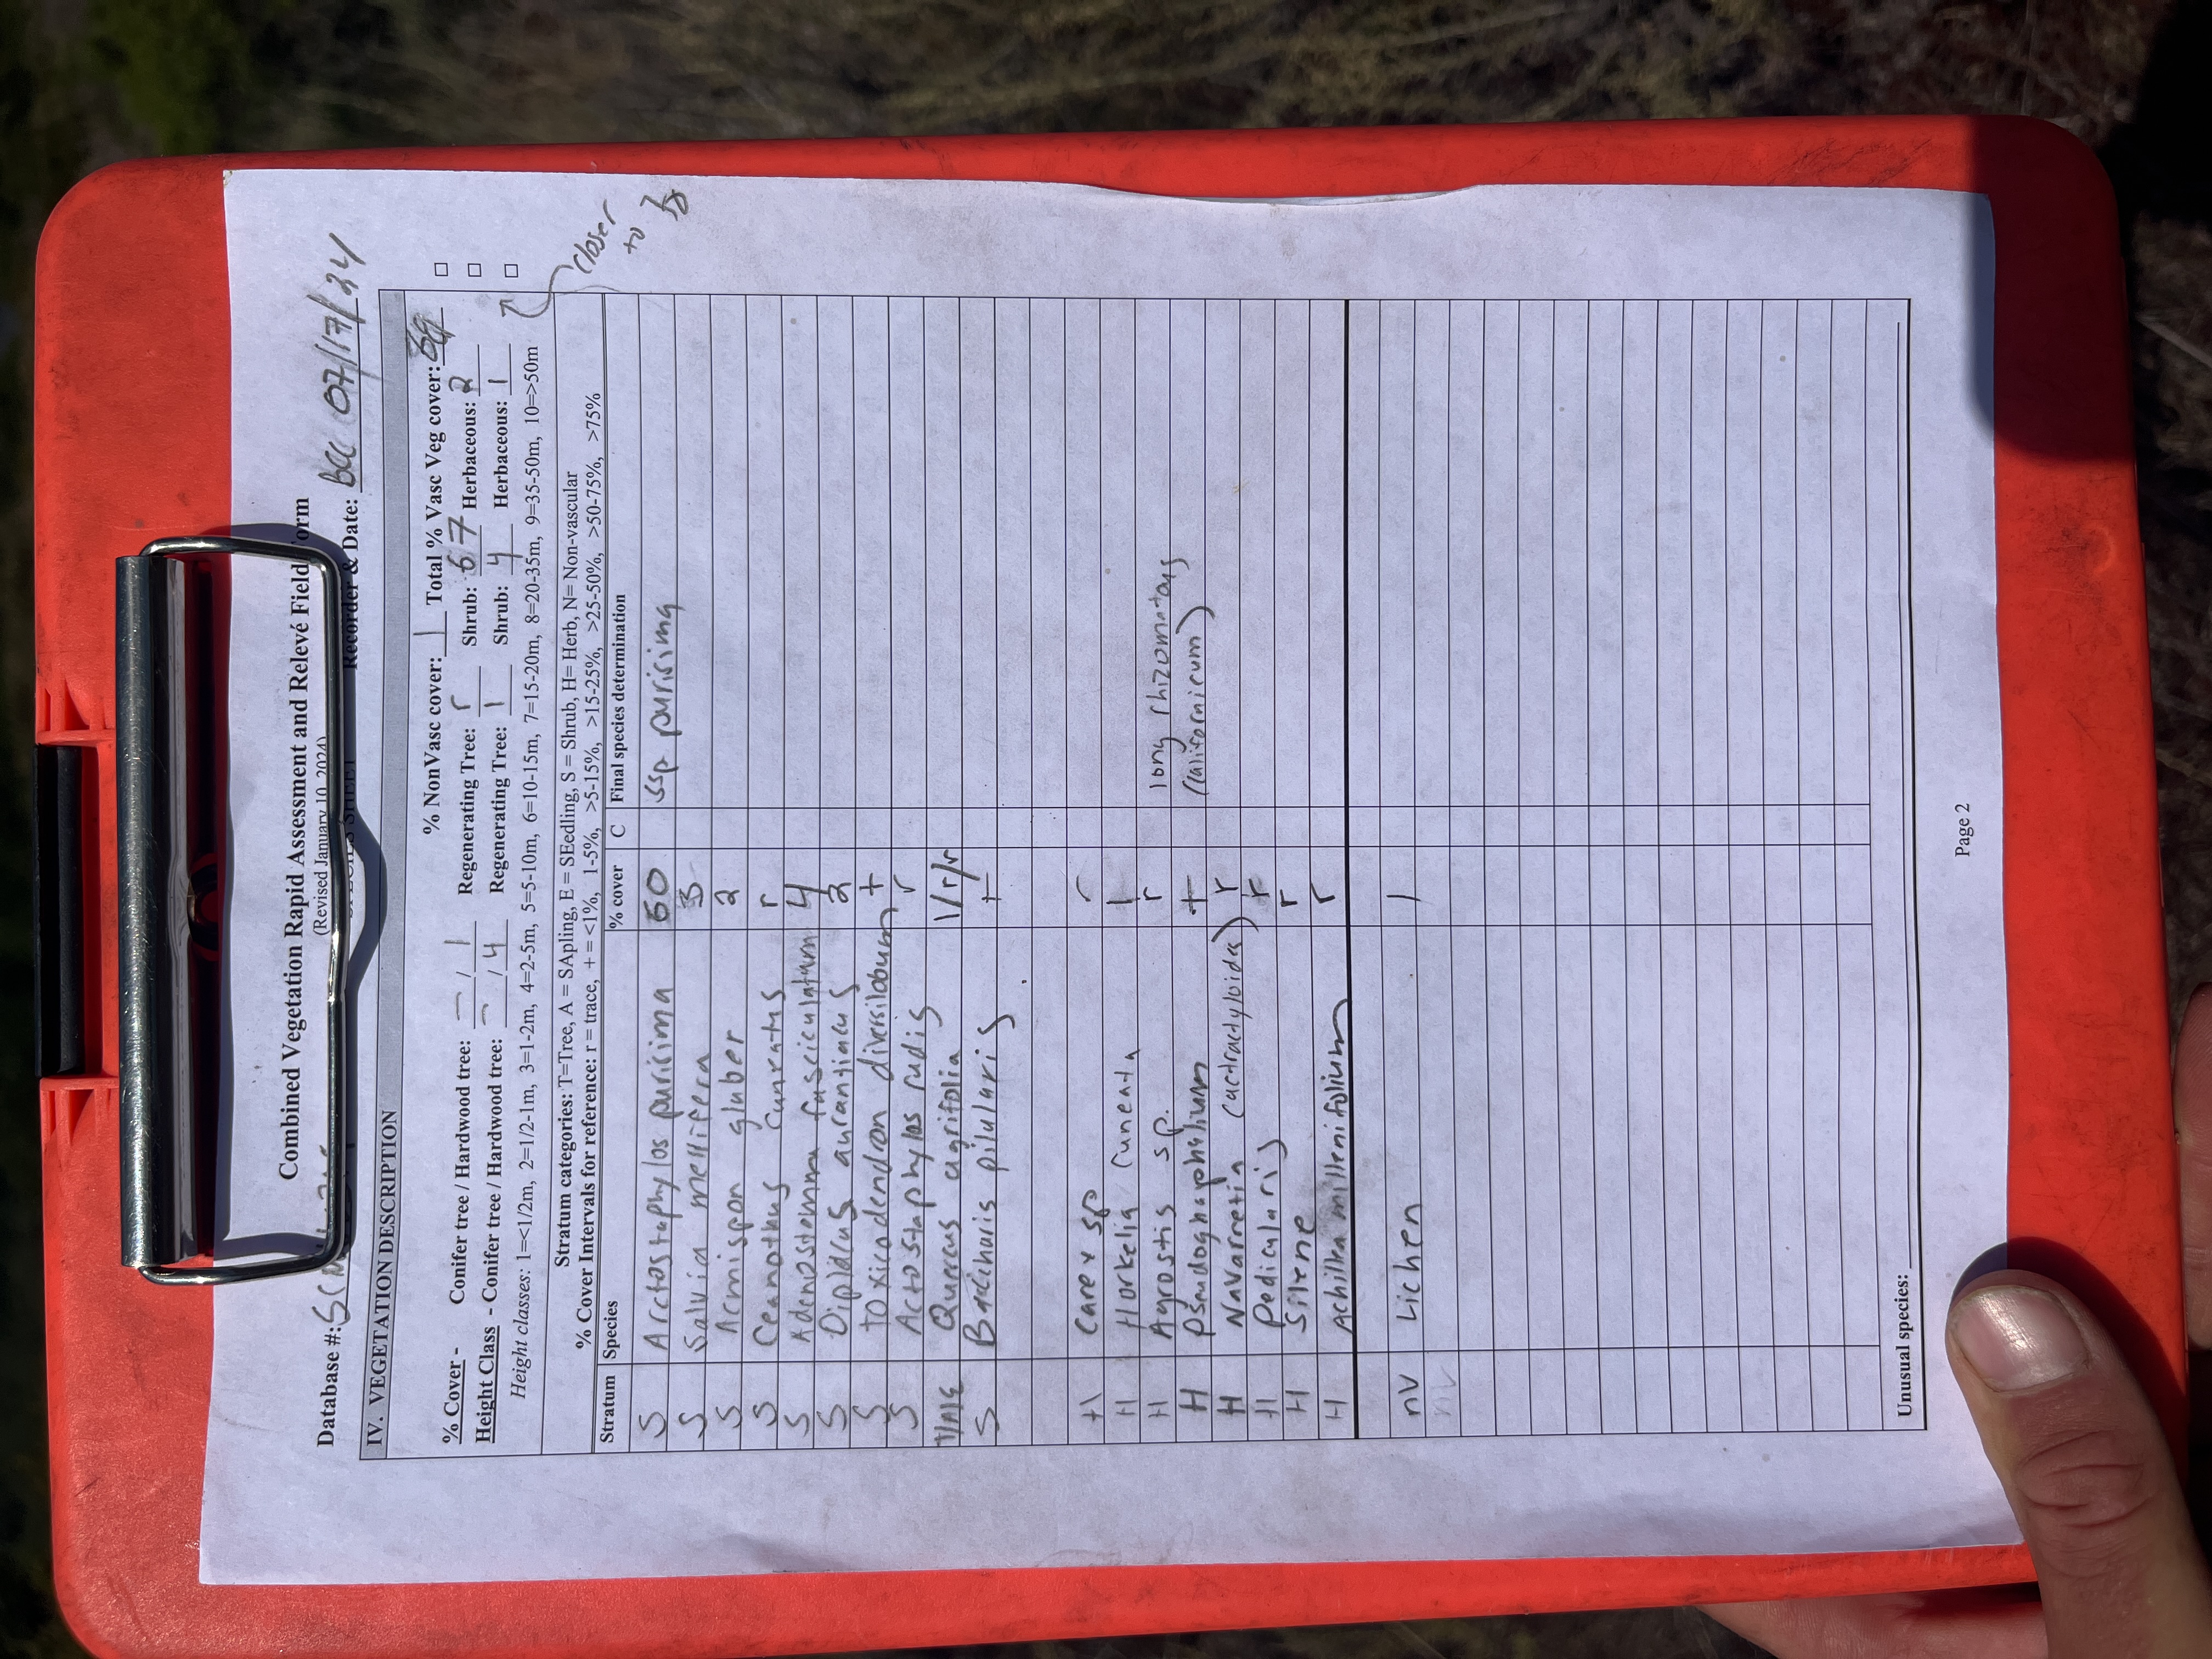 Combined Vegetation Rapid Assessment and Relevé Field Form
(Revised January 10, 2024)
Database #: Recorder & Date: BCC 07/17/24
IV. VEGETATION DESCRIPTION
% NonVasc cover: 1 Total % Vasc Veg cover:
% Cover - Conifer tree / Hardwood tree: — / 1 Regenerating Tree: r Shrub: 67 Herbaceous: 2
Height Class - Conifer tree / Hardwood tree: — / 4 Regenerating Tree: 1 Shrub: 4 Herbaceous: 1
closer to
Height classes: 1=<1/2m, 2=1/2-1m, 3=1-2m, 4=2-5m, 5=5-10m, 6=10-15m, 7=15-20m, 8=20-35m, 9=35-50m, 10=>50m
Stratum categories: T=Tree, A = SApling, E = SEedling, S = Shrub, H= Herb, N= Non-vascular
% Cover Intervals for reference: r = trace, + = <1%, 1-5%, >5-15%, >15-25%, >25-50%, >50-75%, >75%
Stratum Species % cover C Final species determination
S Arctostaphylos purisima 60 ssp purisima
S Salvia mellifera 3
S Acmispon glaber 2
S Ceanothus cuneatus r
S Adenostomma fasciculatum 4
S Diplacus aurantiacus 2
S toxicodendron diversilobum +
S Arctostaphylos rudis r
T/A/E Quercus agrifolia 1/r/r
S Baccharis pilularis +
H Carex sp r
H Horkelia cuneata 1
H Agrostis sp. r long rhizomatous
H Pseudognaphalium + (californicum)
H Navarretia (atractyloides) r
H Pedicularis r
H Silene r
H Achillea millenifolium r
nv Lichen 1
nv
Unusual species:
Page 2